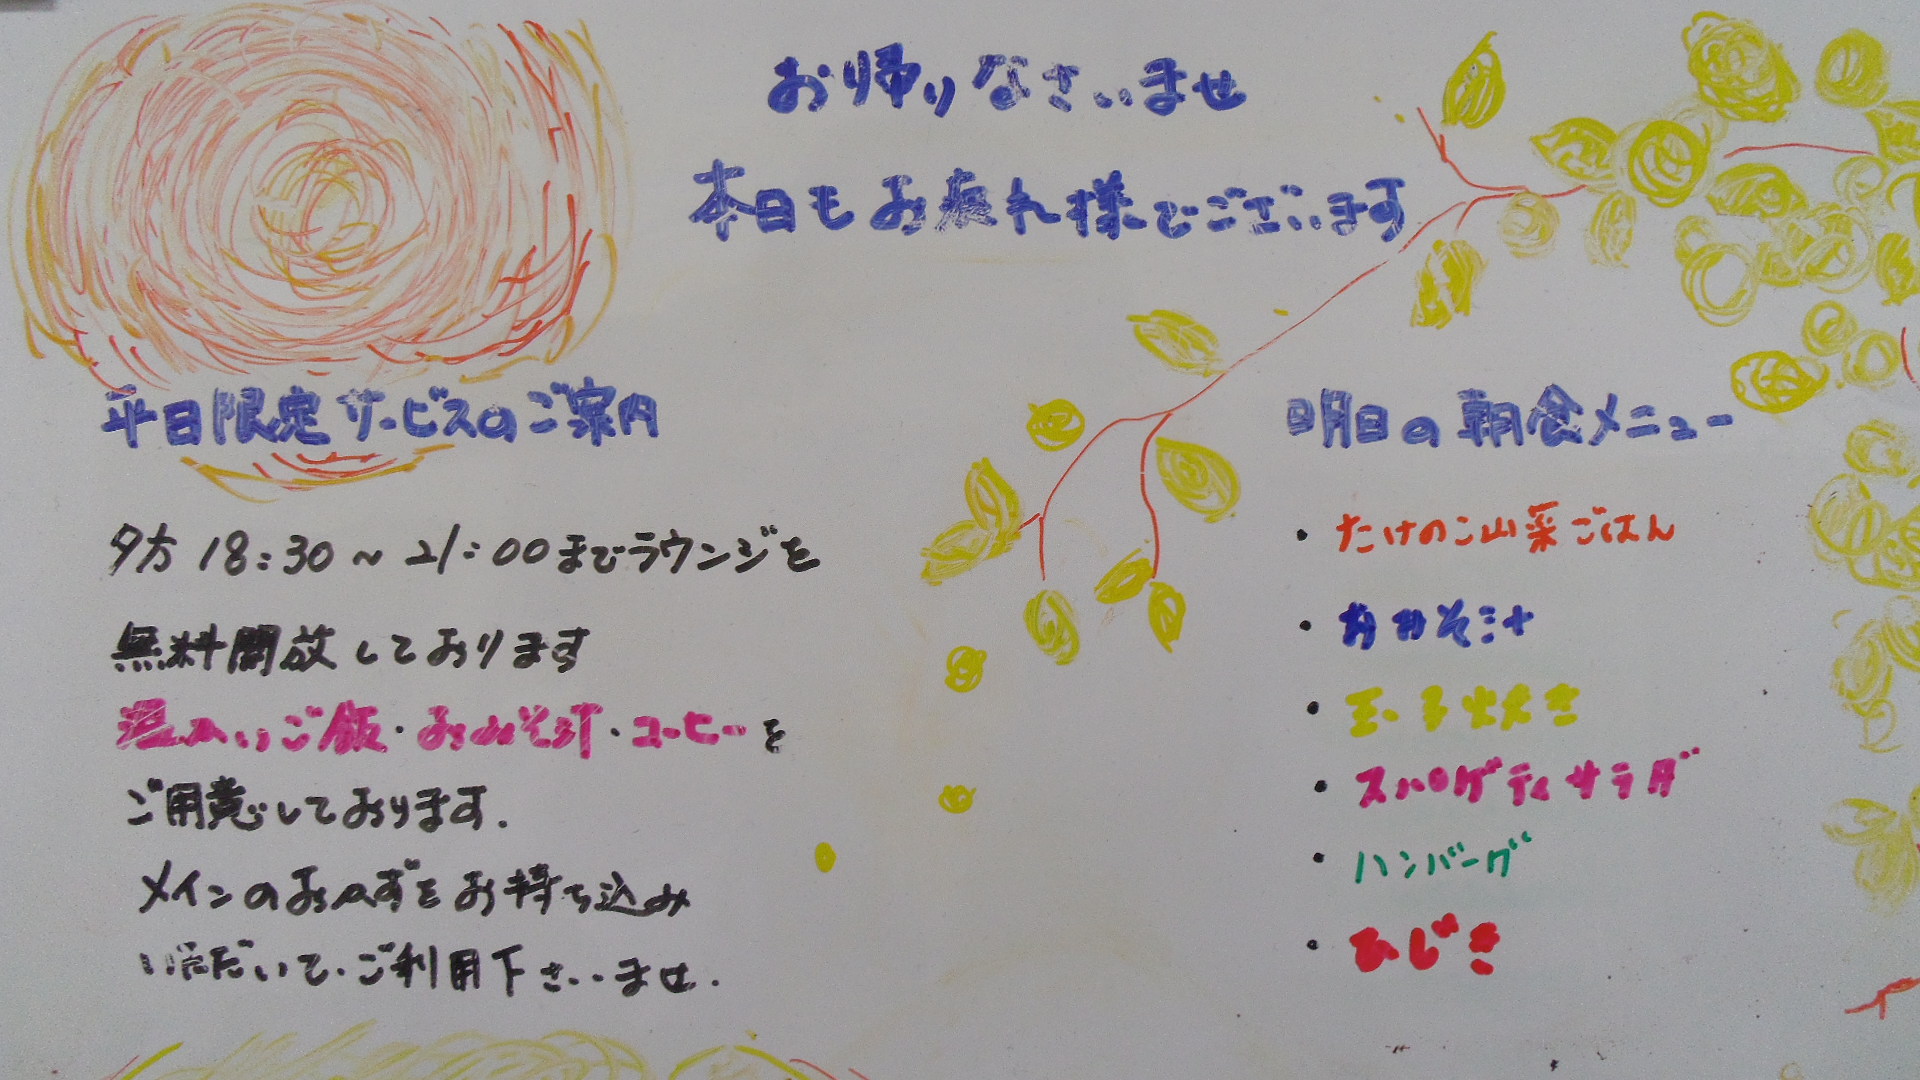 お帰りなさいませ
本日もお疲れ様でございます
平日限定サービスのご案内
夕方 18:30～21:00までラウンジを
無料開放しております
温かいご飯・おみそ汁・コーヒーを
ご用意しております.
メインのおかずをお持ち込み
いただいて、ご利用下さいませ.
明日の朝食メニュー
・たけのこ山菜ごはん
・おみそ汁
・玉子焼き
・スパゲティサラダ
・ハンバーグ
・ひじき